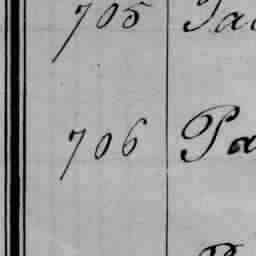 705
706 Pa